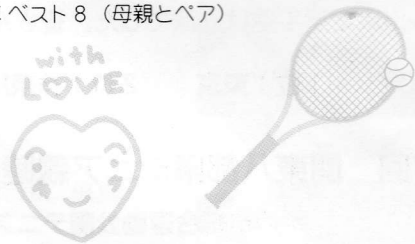 ベスト8（母親とペア）
with
LOVE